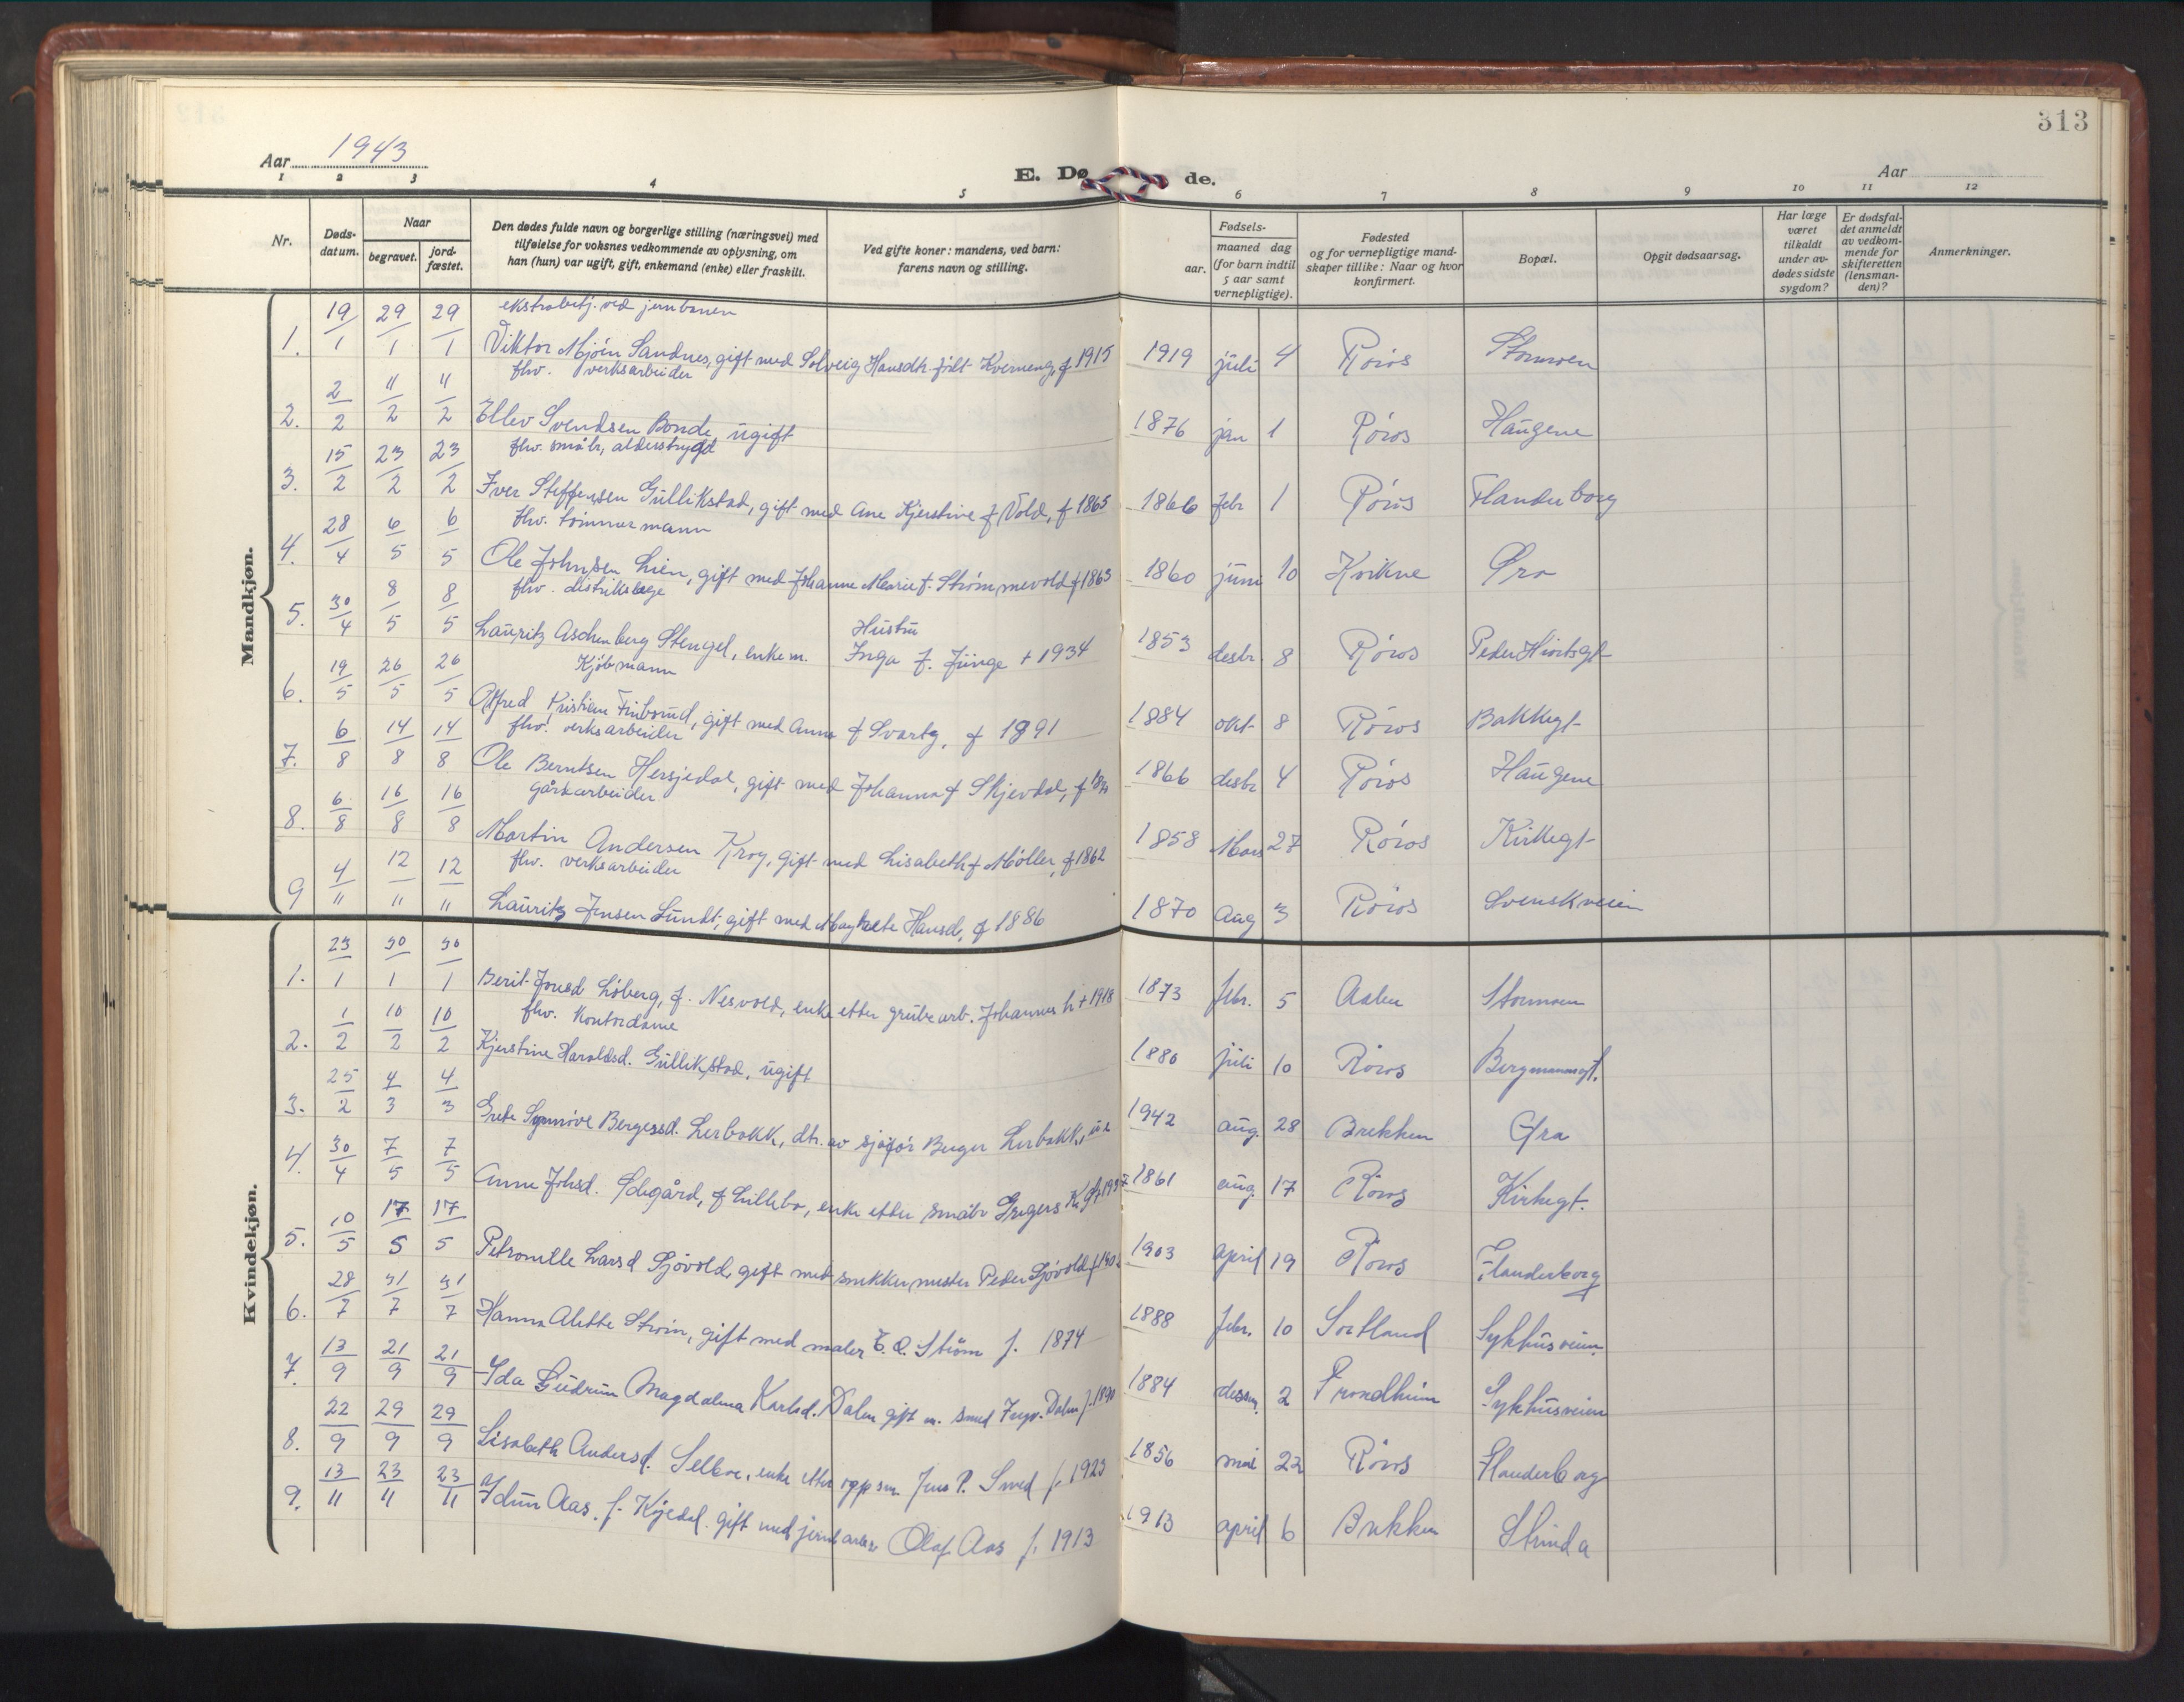 313
Aar 1943
E. Dø de.
Aar
1 2 3 4 5 6 7 8 9 10 11 12
Nr.
Døds-datum.
Naar
begravet.
jord-fæstet.
Den dødes fulde navn og borgerlige stilling (næringsvei) med
tilføielse for voksnes vedkommende av oplysning, om
han (hun) var ugift, gift, enkemand (enke) eller fraskilt.
Ved gifte koner: mandens, ved barn:
farens navn og stilling.
Fødsels-
aar.
maaned dag
(for barn indtil
5 aar samt
vernepligtige).
Fødested
og for vernepligtige mand-
skaper tillike: Naar og hvor
konfirmert.
Bopæl.
Opgit dødsaarsag.
Har læge
været
tilkaldt
under av-
dødes sidste
sygdom?
Er dødsfal-
det anmeldt
av vedkom-
mende for
skifteretten
(lensman-
den)?
Anmerkninger.
Mandkjøn.
ekstraarbeij. ved jernbanen
1. 19/1 29/1 29/1 Viktor Mjøen Sandnes, gift med Solveig Hansdtr. født Kverneng, f 1915 1919 juli 4 Røros Stormoen
fhv. verksarbeider
2. 2/2 11/2 11/2 Ellev Svendsen Bonde, ugift 1876 jan 1 Røros Haugene
fhv. småbr, alderstrygd
3. 15/2 23/2 23/2 Iver Steffensen Gullikstad, gift med Ane Kjerstine f Vold, f 1865 1866 febr 1 Røros Flanderborg
fhv. tømmermann
4. 28/4 6/5 6/5 Ole Johnsen Lien, gift med Johanne Marie f. Strømmevold f 1863 1860 juni 10 Kvikne Øra
fhv. distriktslege
5. 30/4 8/5 8/5 Lauritz Aschenberg Stengel, enkem. Hustru Inga f. Junge + 1934 1853 desbr. 8 Røros Peder Hiortsgt
Kjøbmann
6. 19/5 26/5 26/5 Alfred Kristian Finborud, gift med Anna f Svartg, f 1891 1884 okt 8 Røros Bakkegt
fhv. verksarbeider
7. 6/8 14/8 14/8 Ole Berntsen Hersjedal, gift med Johanna f Skjevdal, f 1866 desbr 4 Røros Haugene
gårdarbeider
8. 6/8 16/8 16/8 Martin Andersen Krog, gift med Lisabeth f Møller, f 1862 1858 Mars 27 Røros Kirkegt
fhv. verksarbeider
9 4/11 12/11 12/11 Lauritz Jensen Lundt, gift med Magrete Hansd, f 1886 1870 Aug 3 Røros Svenskveien
Kvindekjøn.
1. 23/1 30/1 30/1 Berit Jonsd Løberg, f. Nesvold, enke etter grubearb. Johannes L + 1918 1873 febr. 5 Aalen Stormoen
fhv. kontordame
2. 1/2 10/2 10/2 Kjerstine Haroldsd. Gullikstad, ugift 1880 juli 10 Røros Bergmannsgt.
3. 25/2 4/3 4/3 Grete Synnøve Bergersd. Lerbakk, dtr. av sjåfør Berger Lerbakk, 1942 aug. 28 Brekken Øra
4. 30/4 7/5 7/5 Anne Johsd. Ødegård, f Lillebo, enke etter småbr Gregers K. 1861 aug. 17 Røros Kirkegt.
5. 10/5 17/5 17/5 Petronelle Larsd Sjøvold, gift med snekkermester Peder Sjøvold f 1903 april 19 Røros Flanderborg
6. 28/7 31/7 31/7 Hanna Alette Strøm, gift med maler E. O. Strøm f. 1874 1888 febr. 10 Sortland Sykhusveien
7. 13/9 21/9 21/9 Ida Gudrun Magdalena Karlsd. Dalen gift m. smed Ingv. Dalen f. 1890 1884 dessm. 2 Trondheim Sykhusveien
8. 22/9 29/9 29/9 Lisabeth Andersd. Selboe, enke etter oppsm. Jens P. Smed f. 1923 1856 mai 22 Røros Flanderborg
9. 13/11 23/11 23/11 Idun Aas. f. Kojedal. gift med jernb.arb. Olaf Aas f. 1913 1913 april 6 Brekken Strinda